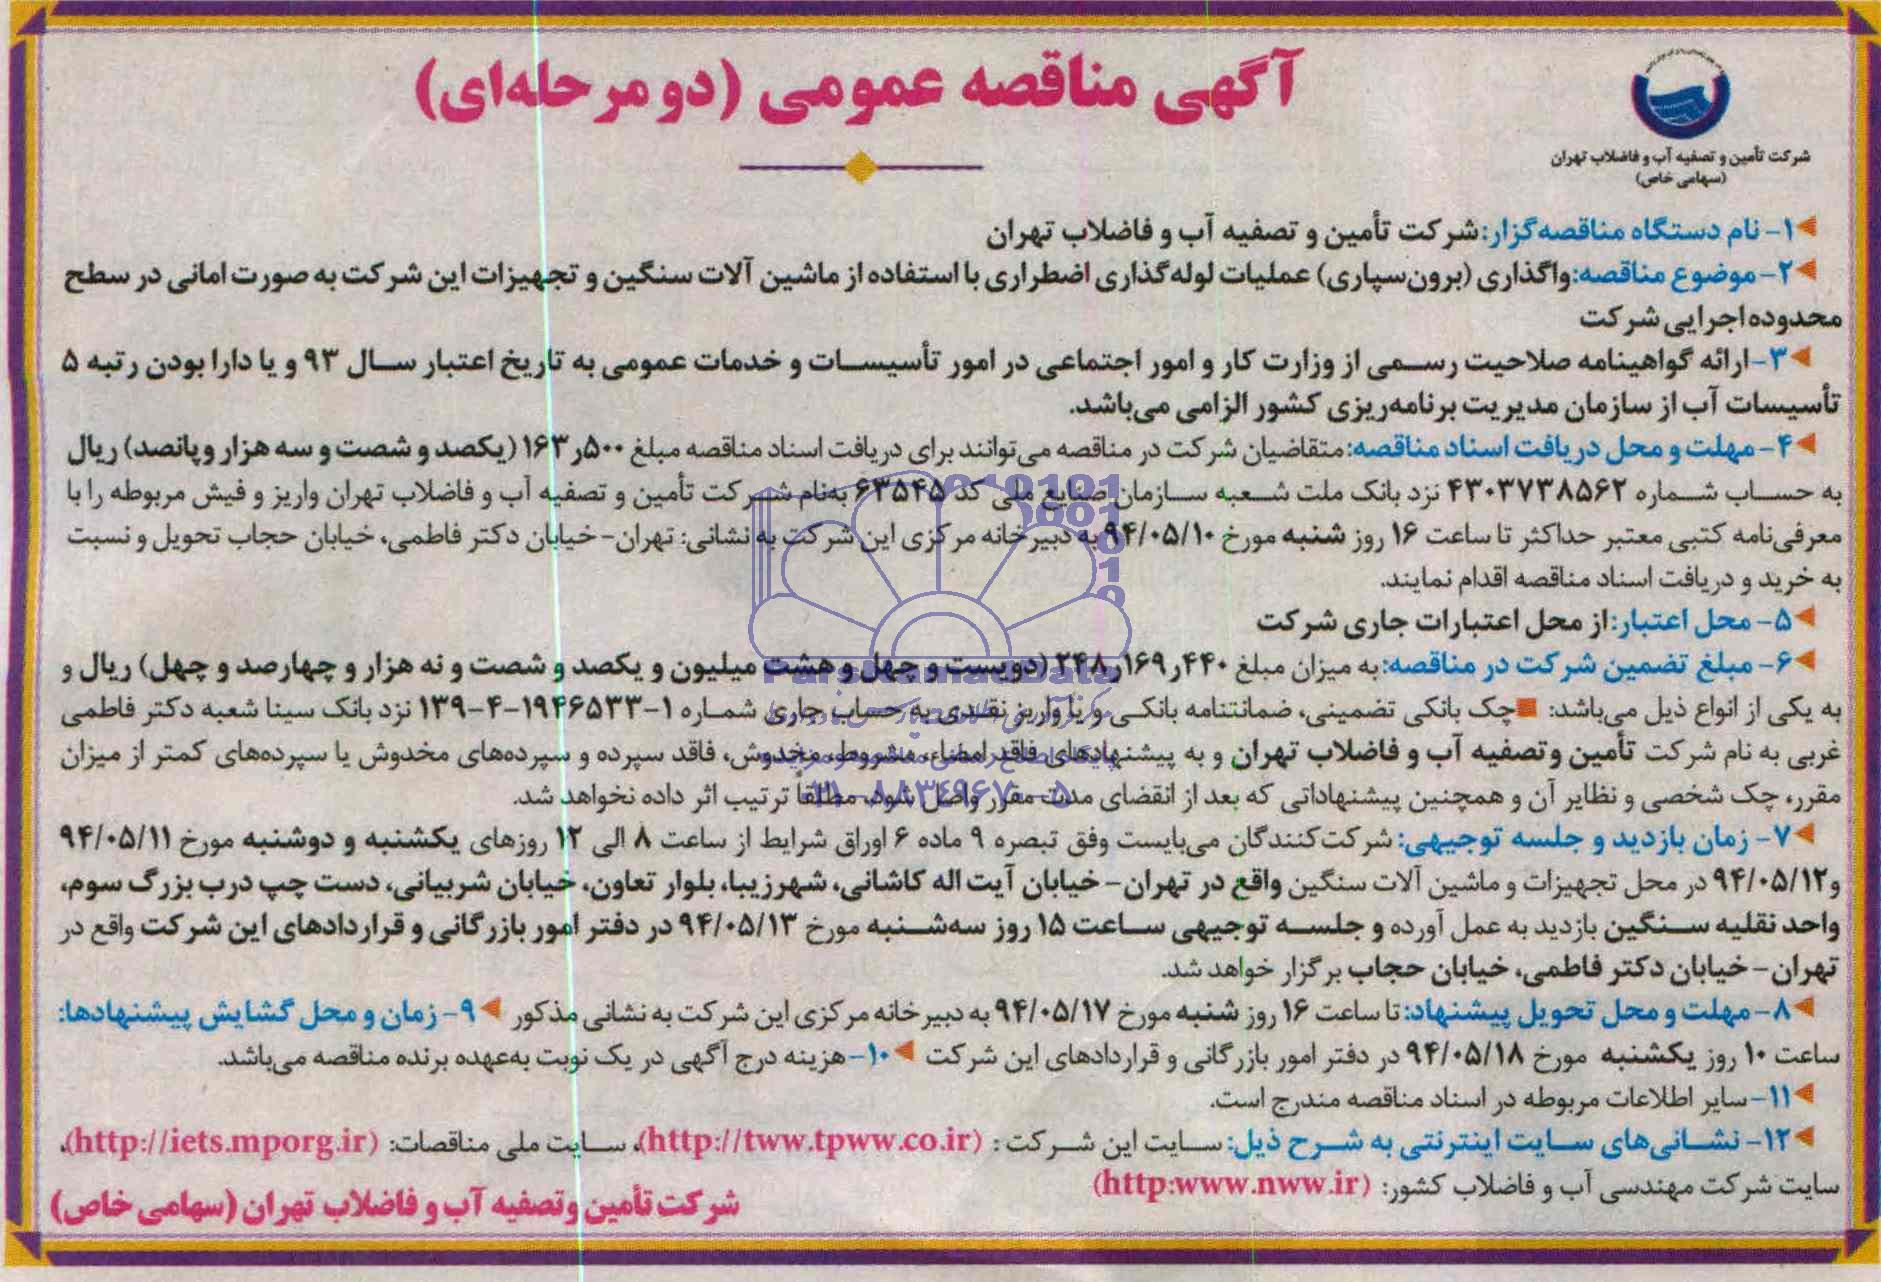 آگهی مناقصه عمومی (دو مرحله‌ای)
شرکت تأمین و تصفیه آب و فاضلاب تهران
(سهامی خاص)
۱- نام دستگاه مناقصه‌گزار: شرکت تأمین و تصفیه آب و فاضلاب تهران
۲- موضوع مناقصه: واگذاری (برون‌سپاری) عملیات لوله‌گذاری اضطراری با استفاده از ماشین آلات سنگین و تجهیزات این شرکت به صورت امانی در سطح
محدوده اجرایی شرکت
۳- ارائه گواهینامه صلاحیت رسمی از وزارت کار و امور اجتماعی در امور تأسیسات و خدمات عمومی به تاریخ اعتبار سال ۹۳ و یا دارا بودن رتبه ۵
تأسیسات آب از سازمان مدیریت برنامه‌ریزی کشور الزامی می‌باشد.
۴- مهلت و محل دریافت اسناد مناقصه: متقاضیان شرکت در مناقصه می‌توانند برای دریافت اسناد مناقصه مبلغ ۱۶۳ر۵۰۰ (یکصد و شصت و سه هزار و پانصد) ریال
به حساب شماره ۴۳۰۳۷۳۸۵۶۲ نزد بانک ملت شعبه سازمان صنایع ملی کد ۶۳۵۴۵ به‌نام شرکت تأمین و تصفیه آب و فاضلاب تهران واریز و فیش مربوطه را با
معرفی‌نامه کتبی معتبر حداکثر تا ساعت ۱۶ روز شنبه مورخ ۹۴/۰۵/۱۰ به دبیرخانه مرکزی این شرکت به نشانی: تهران - خیابان دکتر فاطمی، خیابان حجاب تحویل و نسبت
به خرید و دریافت اسناد مناقصه اقدام نمایند.
۵- محل اعتبار: از محل اعتبارات جاری شرکت
۶- مبلغ تضمین شرکت در مناقصه: به میزان مبلغ ۲۴۸ر۱۶۹ر۴۴۰ (دویست و چهل و هشت میلیون و یکصد و شصت و نه هزار و چهارصد و چهل) ریال و
به یکی از انواع ذیل می‌باشد: ■چک بانکی تضمینی، ضمانتنامه بانکی و یا واریز نقدی به حساب جاری شماره ۱-۱۹۴۶۵۳۳-۴-۱۳۹ نزد بانک سینا شعبه دکتر فاطمی
غربی به نام شرکت تأمین و تصفیه آب و فاضلاب تهران و به پیشنهادهای فاقد امضاء، مشروط، مخدوش، فاقد سپرده و سپرده‌های مخدوش یا سپرده‌های کمتر از میزان
مقرر، چک شخصی و نظایر آن و همچنین پیشنهاداتی که بعد از انقضای مدت مقرر واصل شود، مطلقاً ترتیب اثر داده نخواهد شد.
۷- زمان بازدید و جلسه توجیهی: شرکت‌کنندگان می‌بایست وفق تبصره ۹ ماده ۶ اوراق شرایط از ساعت ۸ الی ۱۲ روزهای یکشنبه و دوشنبه مورخ ۹۴/۰۵/۱۱
و ۹۴/۰۵/۱۲ در محل تجهیزات و ماشین آلات سنگین واقع در تهران - خیابان آیت اله کاشانی، شهرزیبا، بلوار تعاون، خیابان شربیانی، دست چپ درب بزرگ سوم،
واحد نقلیه سنگین بازدید به عمل آورده و جلسه توجیهی ساعت ۱۵ روز سه‌شنبه مورخ ۹۴/۰۵/۱۳ در دفتر امور بازرگانی و قراردادهای این شرکت واقع در
تهران - خیابان دکتر فاطمی، خیابان حجاب برگزار خواهد شد.
۸- مهلت و محل تحویل پیشنهاد: تا ساعت ۱۶ روز شنبه مورخ ۹۴/۰۵/۱۷ به دبیرخانه مرکزی این شرکت به نشانی مذکور ۹- زمان و محل گشایش پیشنهادها:
ساعت ۱۰ روز یکشنبه مورخ ۹۴/۰۵/۱۸ در دفتر امور بازرگانی و قراردادهای این شرکت ۱۰- هزینه درج آگهی در یک نوبت به‌عهده برنده مناقصه می‌باشد.
۱۱- سایر اطلاعات مربوطه در اسناد مناقصه مندرج است.
۱۲- نشانی‌های سایت اینترنتی به شرح ذیل: سایت این شرکت: (http://tww.tpww.co.ir)، سایت ملی مناقصات: (http://iets.mporg.ir)،
سایت شرکت مهندسی آب و فاضلاب کشور: (http:www.nww.ir)
شرکت تأمین و تصفیه آب و فاضلاب تهران (سهامی خاص)
ParsNamadData
۰۲۱-۸۸۳۴۹۶۷۰-۵